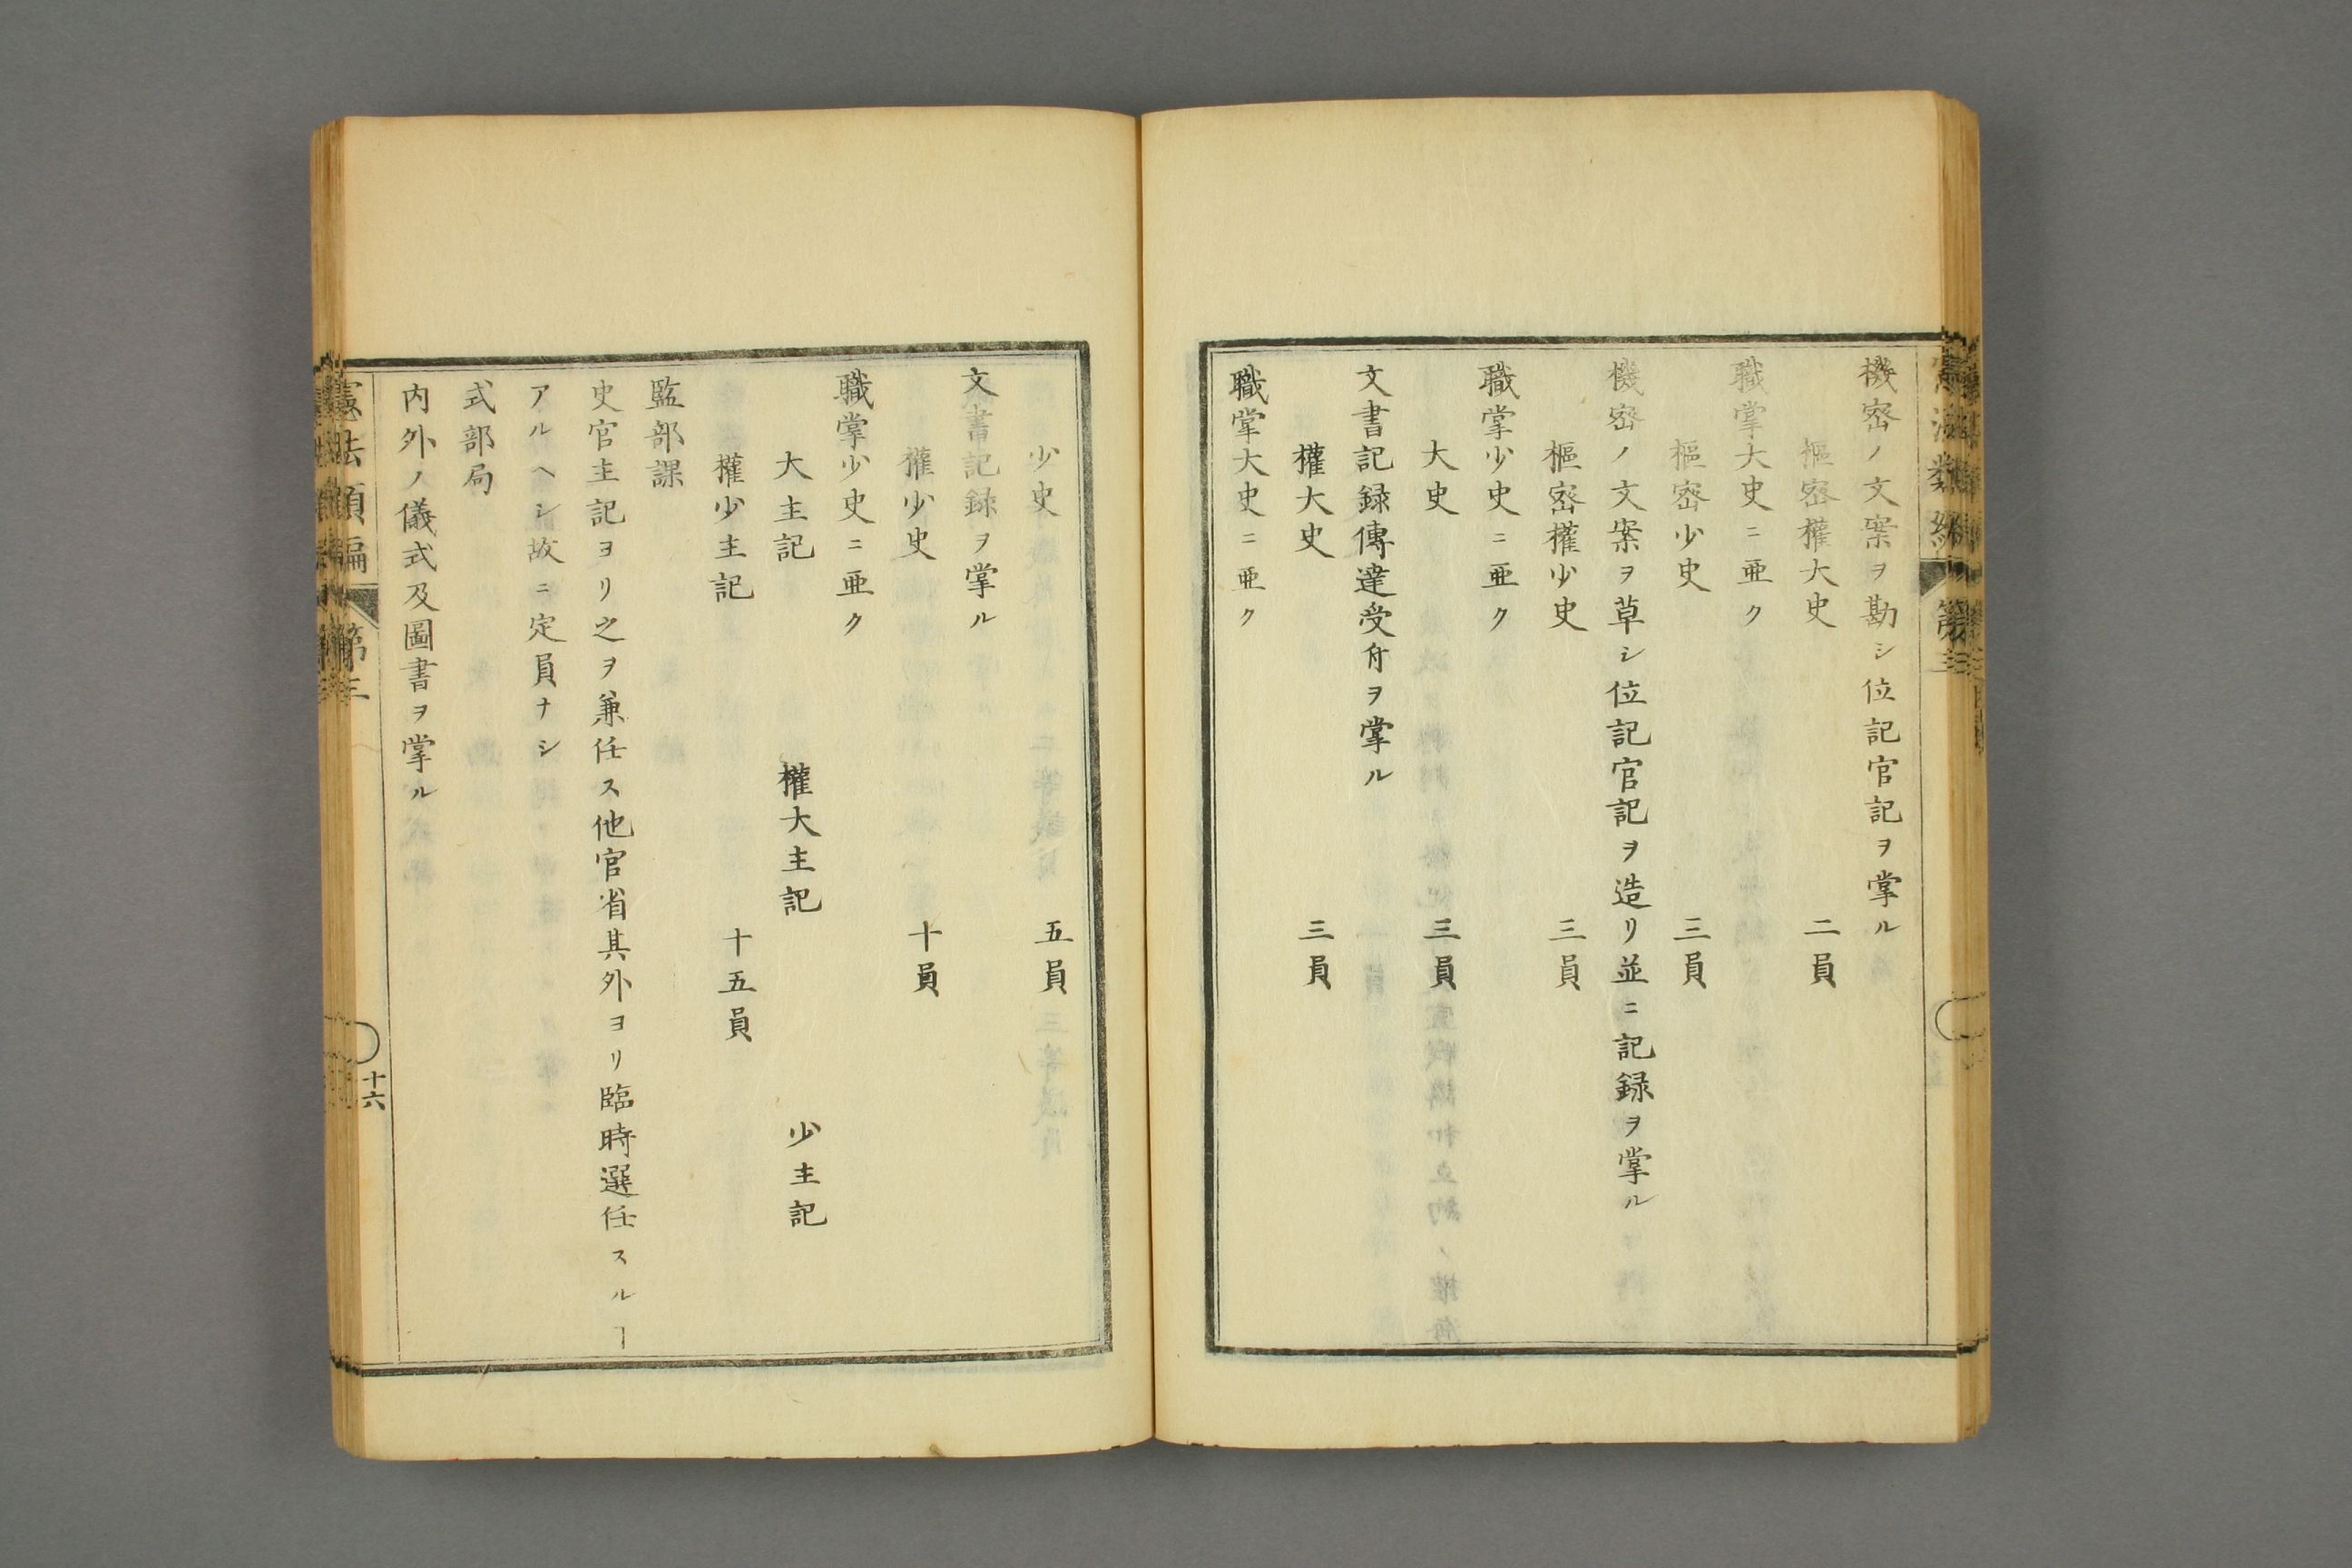 機密ノ文案ヲ勘シ位記官記ヲ掌ル
樞密權大史 二員
職掌大史ニ亜ク
樞密少史 三員
機密ノ文案ヲ草シ位記官記ヲ造リ並ニ記録ヲ掌ル
樞密權少史 三員
職掌少史ニ亜ク
大史 三員
文書記録傳達受付ヲ掌ル
權大史 三員
職掌大史ニ亜ク
少史 五員
文書記録ヲ掌ル
權少史 十員
職掌少史ニ亜ク
大主記 權大主記 少主記
權少主記 十五員
監部課
史官主記ヨリ之ヲ兼任ス他官省其外ヨリ臨時選任スルヿ
アルヘシ故ニ定員ナシ
式部局
内外ノ儀式及圖書ヲ掌ル
憲法類編 第三
十六